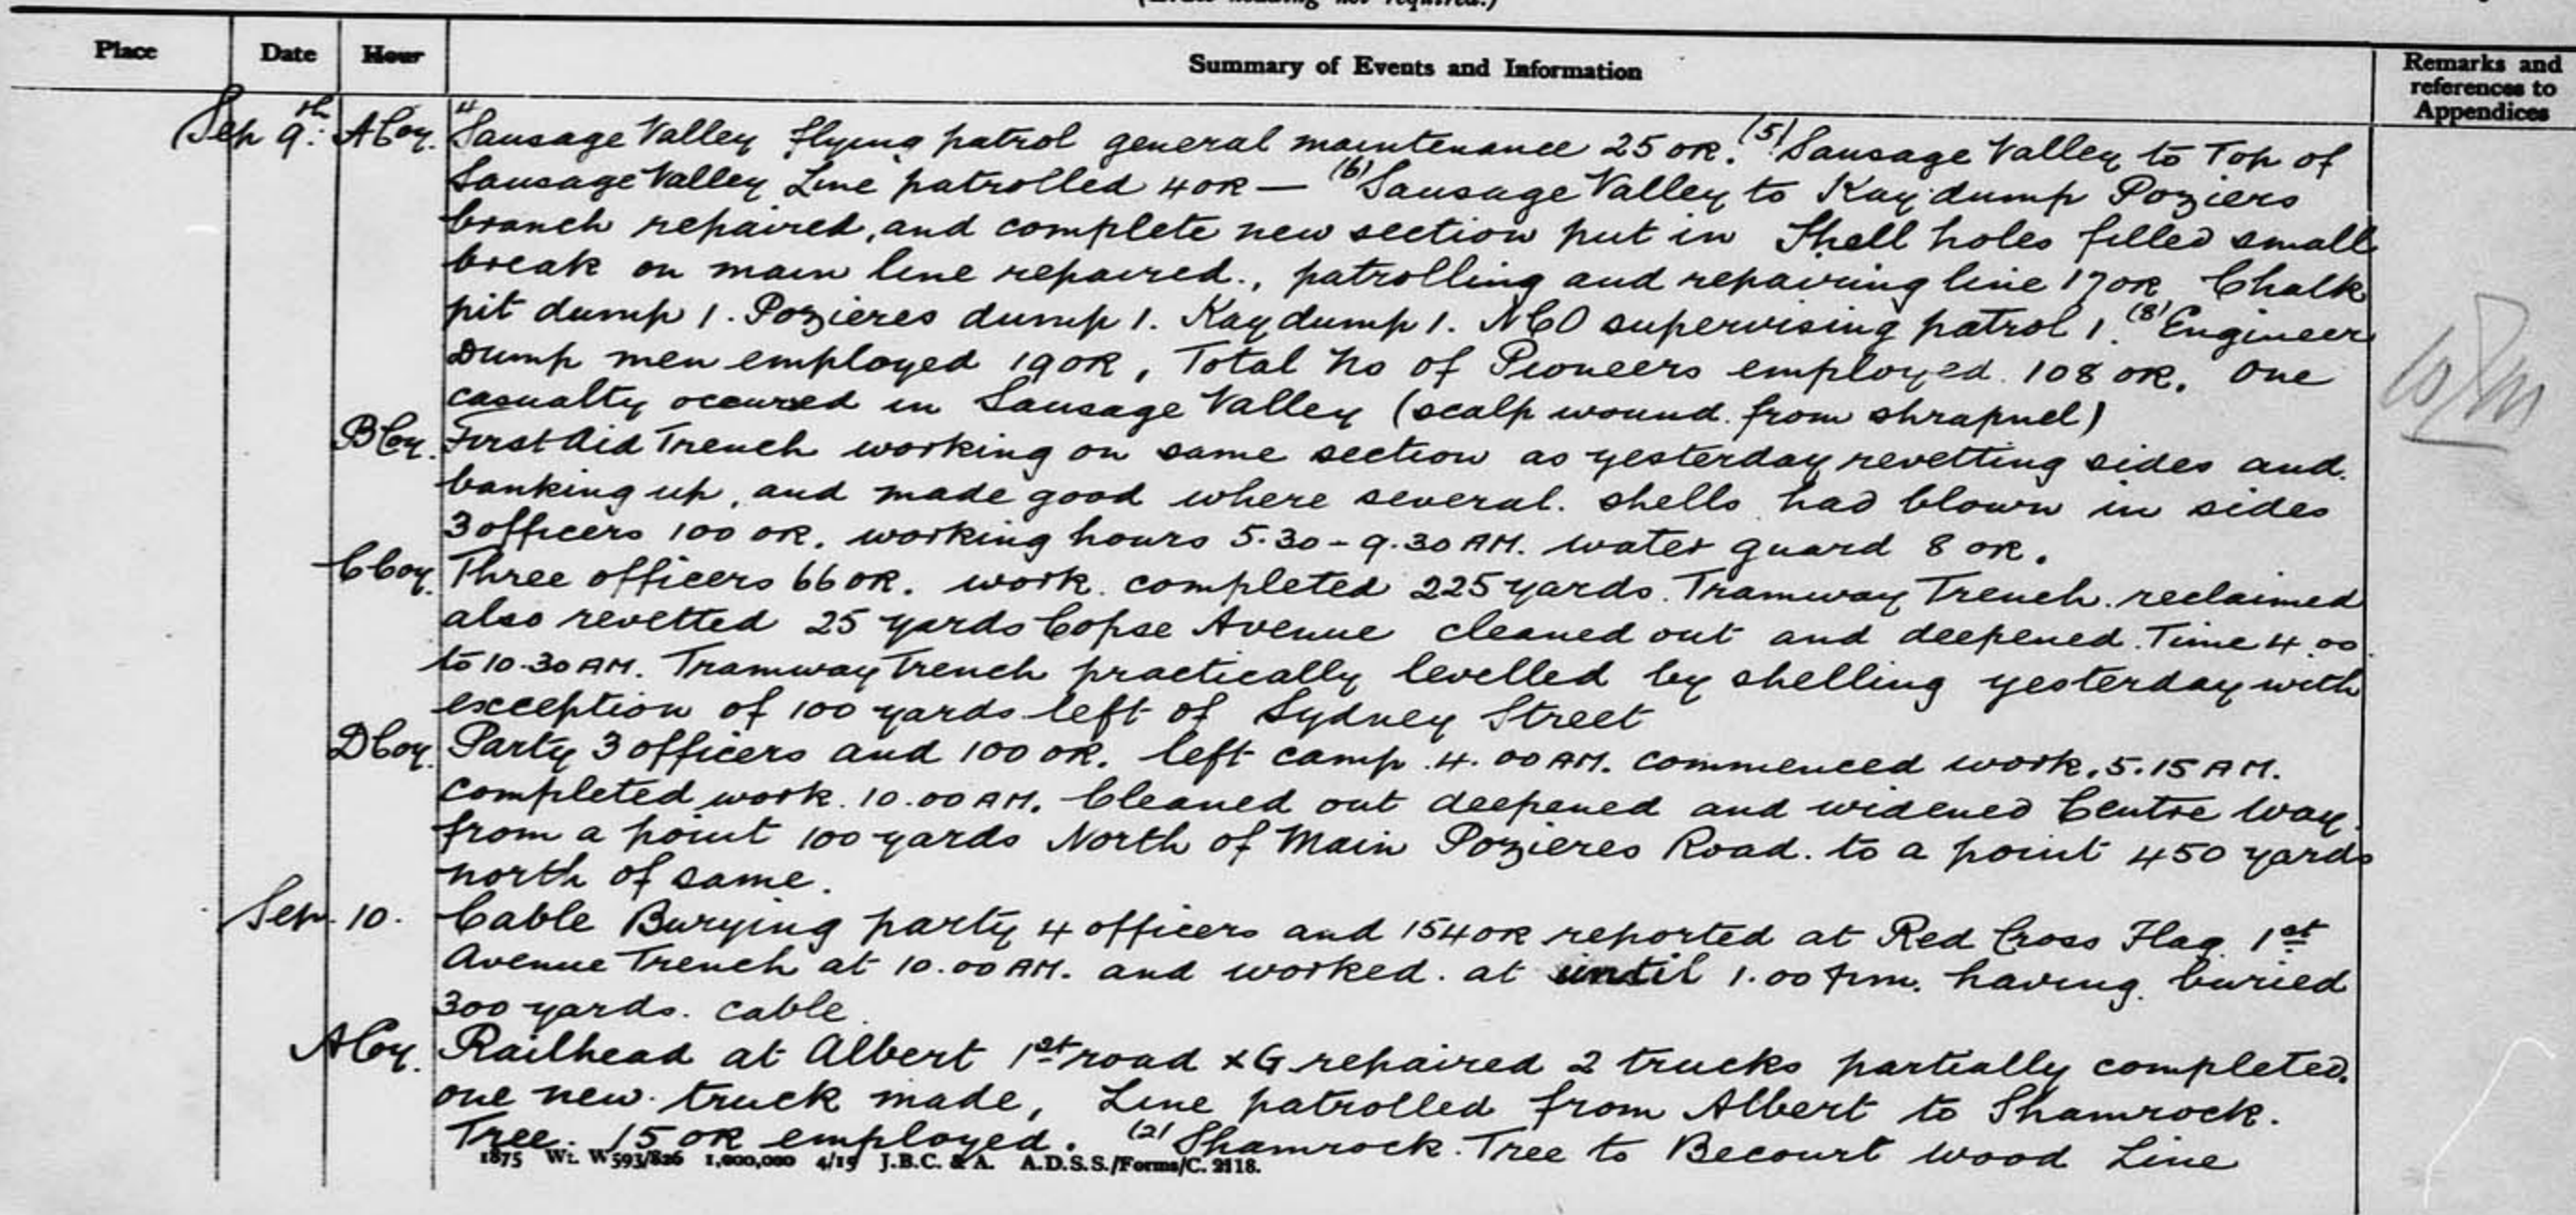 Place Date Hour Summary of Events and Information Remarks and references to Appendices
Sep 9th. A Coy. 4 Sausage Valley flying patrol general maintenance 25 OR. (5) Sausage Valley to Top of
Sausage Valley Line patrolled 4 OR — (6) Sausage Valley to Kay dump Poziers
branch repaired, and complete new section put in Shell holes filled small
break on main line repaired., patrolling and repairing line 17 OR Chalk
pit dump 1. Pozieres dump 1. Kay dump 1. NCO supervising patrol 1. (8) Engineer
Dump men employed 19 OR, Total No of Pioneers employed. 108 OR. One
casualty occured in Sausage Valley (scalp wound from shrapnel)
B Coy. First Aid Trench working on same section as yesterday revetting sides and
banking up, and made good where several. shells had blown in sides
3 officers 100 OR. working hours 5.30 - 9.30 AM. water guard 8 OR.
C Coy. Three officers 66 OR. work completed 225 yards. Tramway Trench. reclaimed
also revetted 25 yards Copse Avenue cleaned out and deepened. Time 4.00
to 10.30 AM. Tramway Trench practically levelled by shelling yesterday with
exception of 100 yards left of Sydney Street
D Coy. Party 3 officers and 100 OR. left camp 4.00 AM. commenced work. 5.15 AM.
completed work. 10.00 AM. Cleaned out deepened and widened Centre Way
from a point 100 yards North of Main Pozieres Road. to a point 450 yards
north of same.
Sep. 10. Cable Burying party 4 officers and 154 OR reported at Red Cross Flag 1st
Avenue Trench at 10.00 AM. and worked. at until 1.00 pm. having buried
300 yards. cable.
A Coy. Railhead at Albert 1st road x G repaired 2 trucks partially completed.
one new truck made, Line patrolled from Albert to Shamrock.
Tree. 15 OR employed. (2) Shamrock Tree to Becourt wood Line
1875 Wt. W593/826 1,000,000 4/15 J.B.C. & A. A.D.S.S./Forms/C. 2118.